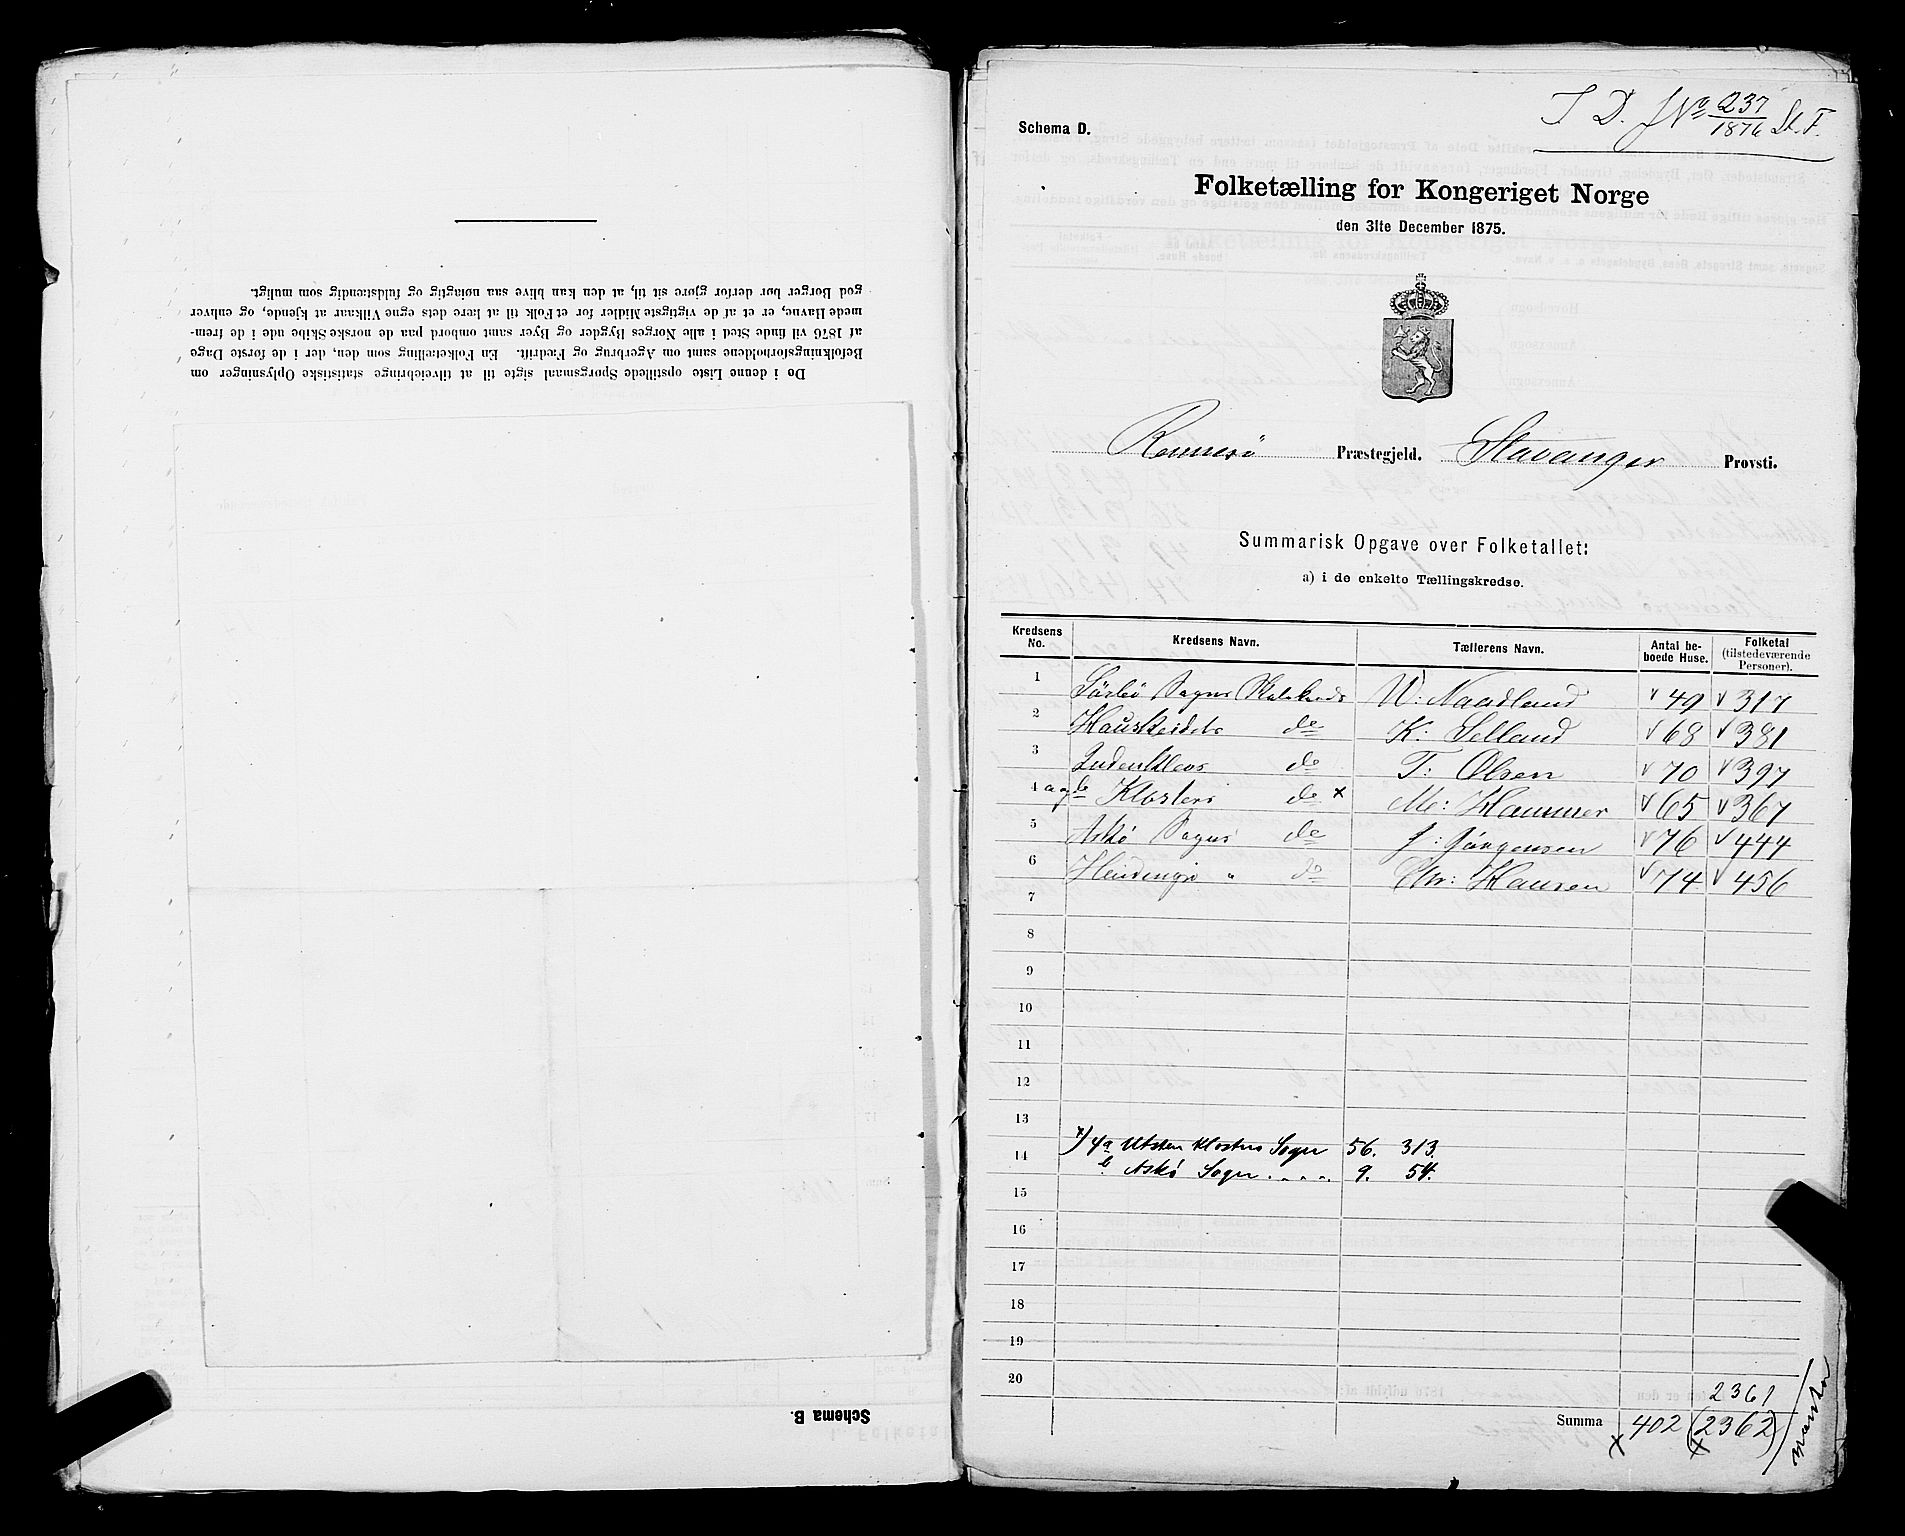 Do i denne Liste opstillede Spørgsmaal sigte til at tilveiebringe statistiske Oplysninger om
Befolkningsforholdene samt om Agerbrug og Fædrift. En Folketælling som den, der i de første Dage
af 1876 vil finde Sted i alle Norges Bygder og Byer samt ombord paa de norske Skibe ude i de frem-
mede Havne, er et af de vigtigste Midler for et Folk til at lære dets egne Vilkaar at kjende, og enhver
god Borger bør derfor gjøre sit til, at den kan blive saa nøiagtig og fuldstændig som muligt.
Schema B.
Schema D.
T D. J No 237/1876 St. F.
Folketælling for Kongeriget Norge
den 31te December 1875.
Rennesö Præstegjeld. Stavanger Provsti.
Summarisk Opgave over Folketallet:
a) i de enkelte Tællingskredse.
Kredsens No. Kredsens Navn. Tællerens Navn. Antal beboede Huse. Folketal (tilstedeværende Personer).
1 Sörbö Sogns Skolekreds W: Naadland 49 317
2 Hauskeids do K: Selland 68 381
3 do T: Olsen 70 397
4 a og b Klosters do x M: Hammer 65 367
5 Askö Sogns do J: Jörgensen 76 444
6 " do Chr: Hansen 74 456
7
8
9
10
11
12
13
14 x) 4a Utsten Klosters Sogn 56. 313.
b Askö Sogn . . . . 9. 54.
15
16
17
18
19
20
2361
Summa 402 (2362)